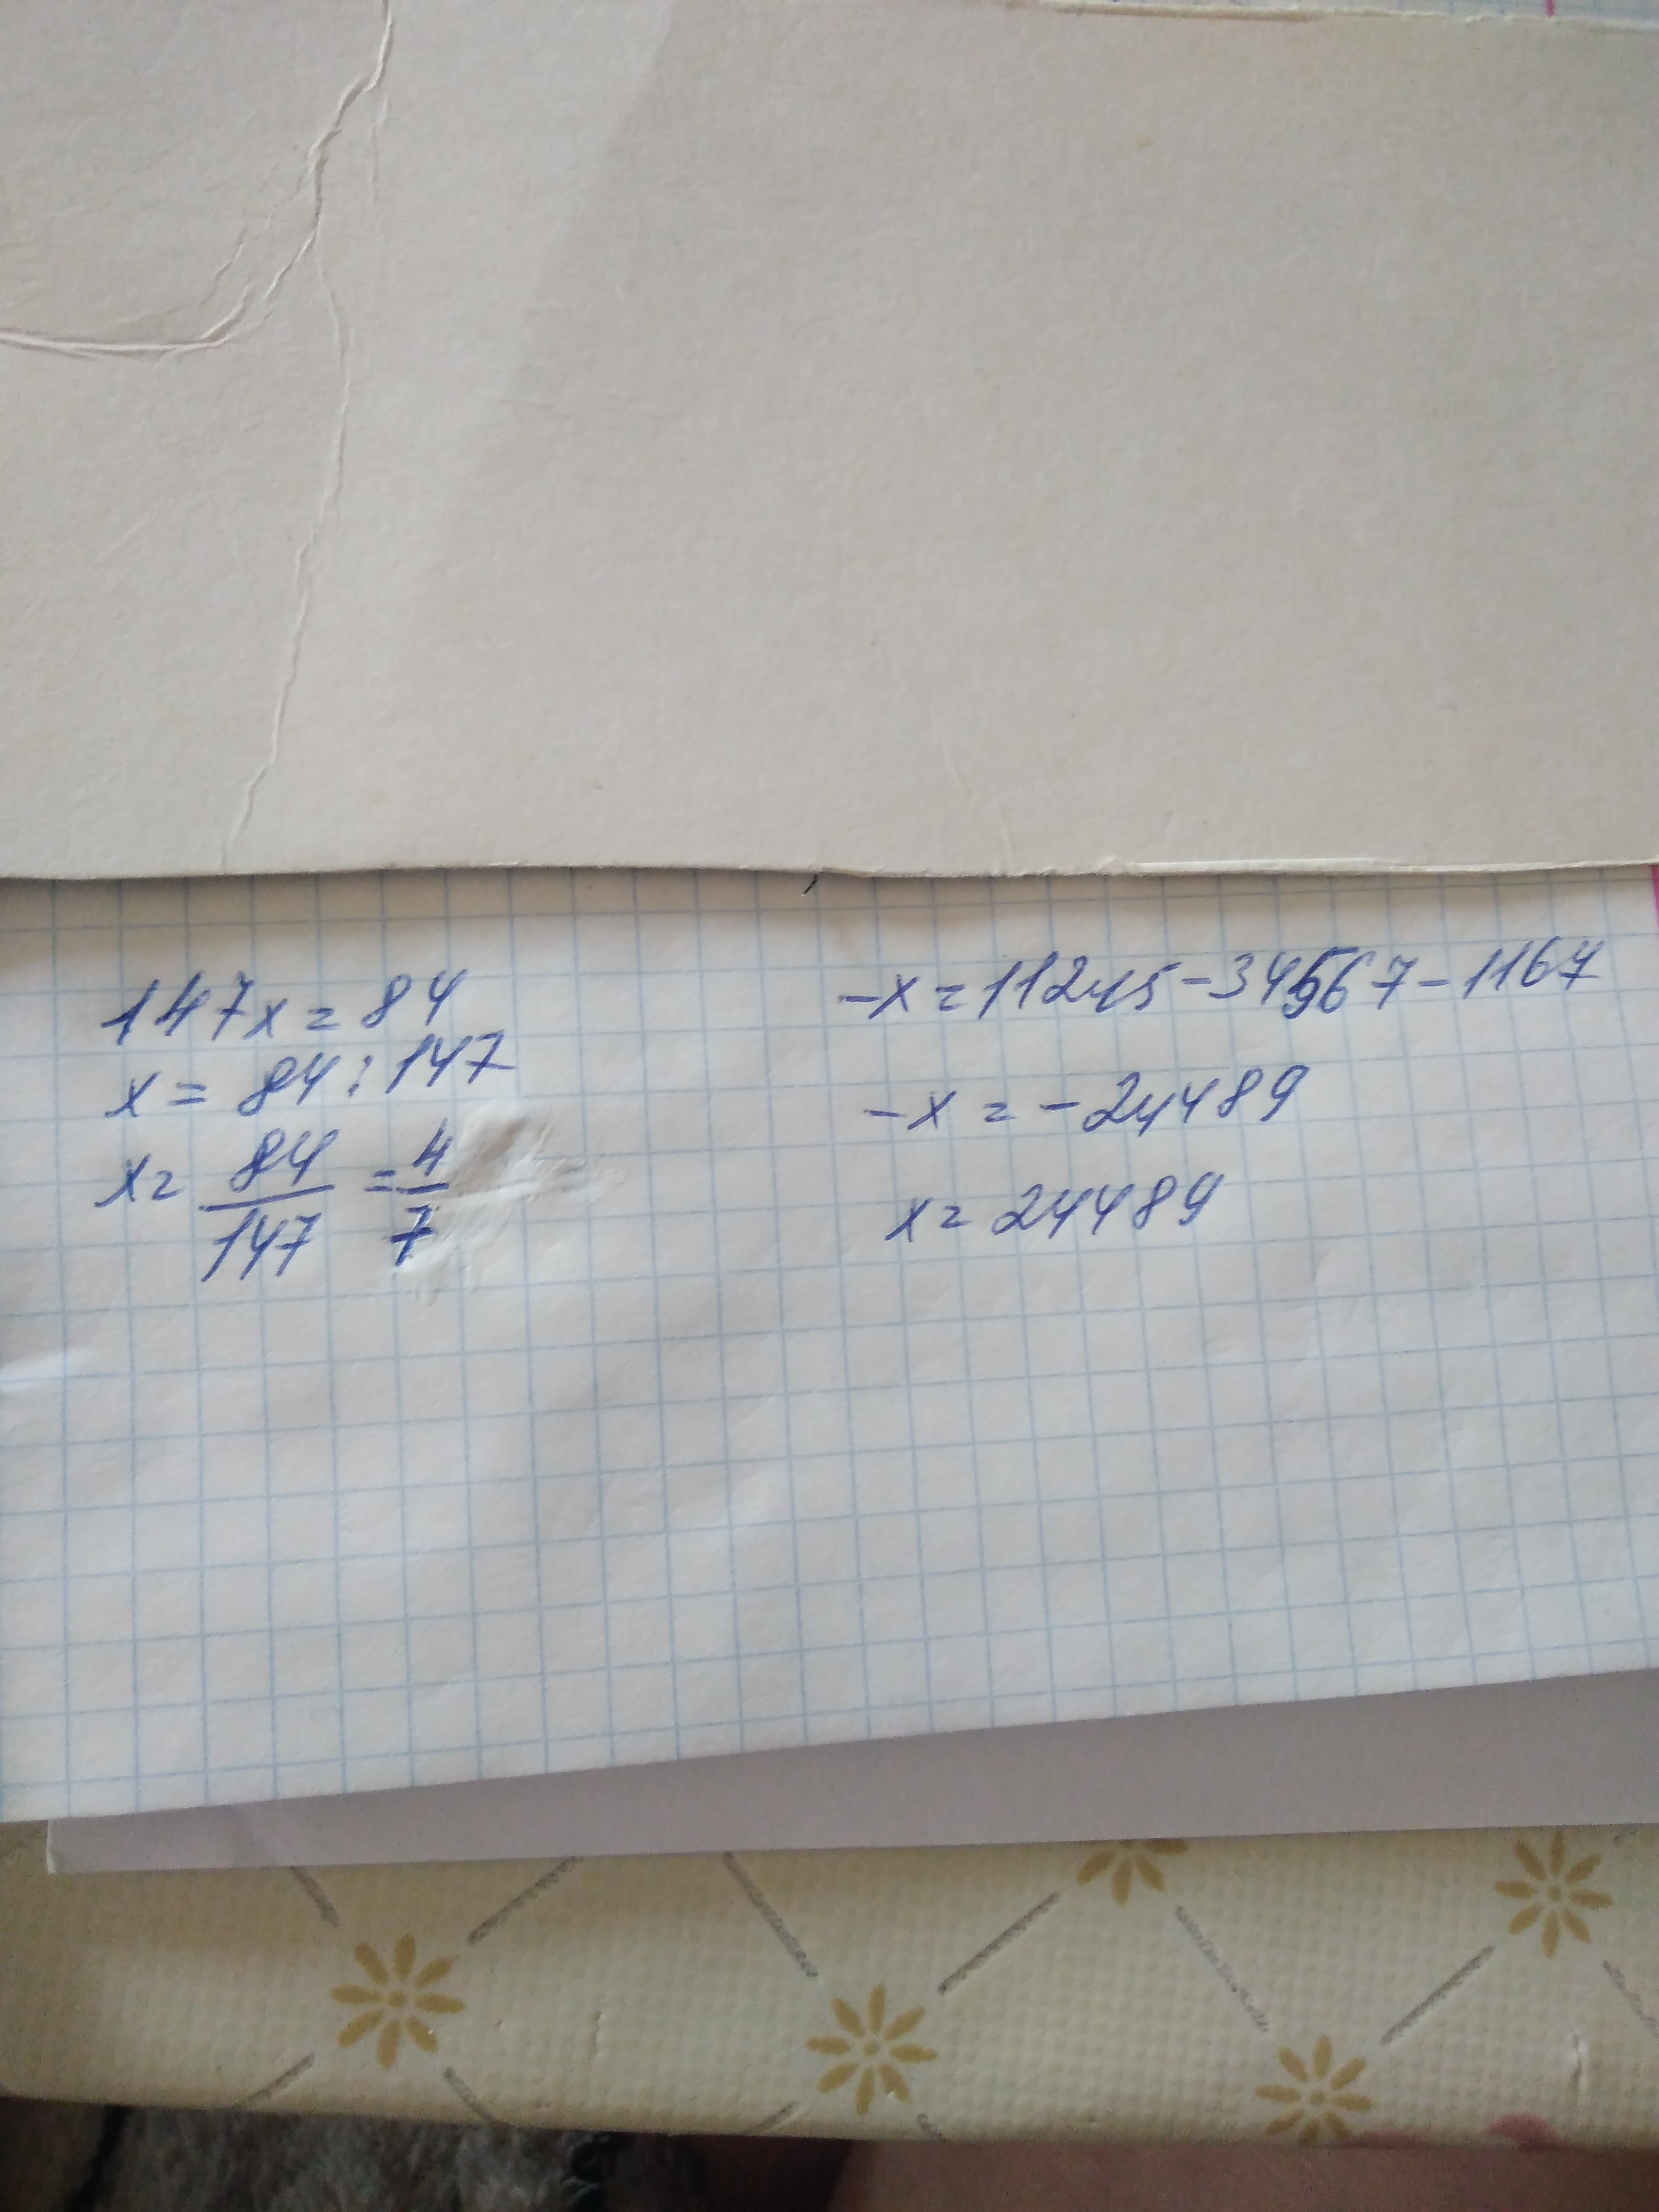 147x = 84
x = 84 : 147
x = 84/147 = 4/7
-x = 11245 - 34567 - 1167
-x = -24489
x = 24489